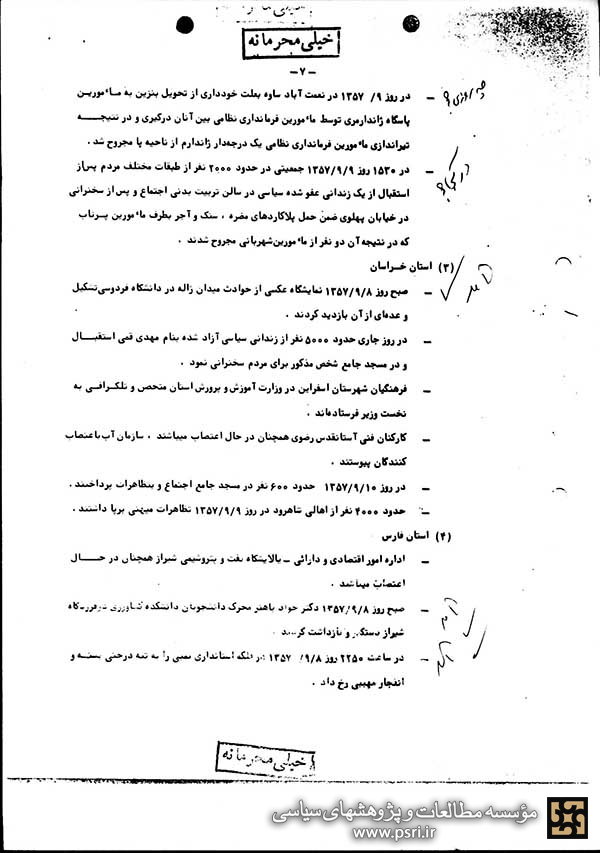 خیلی محرمانه
-۷-
- در روز ۹/ ۱۳۵۷ در نعمت آباد ساوه بعلت خودداری از تحویل بنزین به مأمورین
پاسگاه ژاندارمری توسط مأمورین فرمانداری نظامی بین آنان درگیری و در نتیجه
تیراندازی مأمورین فرمانداری نظامی یک درجه‌دار ژاندارم از ناحیه پا مجروح شد .
- در ۱۵۳۰ روز ۱۳۵۷/۹/۹ جمعیتی در حدود ۲۰۰۰ نفر از طبقات مختلف مردم پس‌از
استقبال از یک زندانی عفو شده سیاسی در سالن تربیت بدنی اجتماع و پس از سخنرانی
در خیابان پهلوی ضمن حمل پلاکاردهای مضره ، سنگ و آجر بطرف مأمورین پرتاب
که در نتیجه آن دو نفر از مأمورین شهربانی مجروح شدند .
(۳) استان خراسان
- صبح روز ۱۳۵۷/۹/۸ نمایشگاه عکسی از حوادث میدان ژاله در دانشگاه فردوسی تشکیل
و عده‌ای از آن بازدید کردند .
- در روز جاری حدود ۵۰۰۰ نفر از زندانی سیاسی آزاد شده بنام مهدی قمی استقبال
و در مسجد جامع شخص مذکور برای مردم سخنرانی نمود .
- فرهنگیان شهرستان اسفراین در وزارت آموزش و پرورش استان متحصن و تلگرافی به
نخست وزیر فرستاده‌اند .
- کارکنان فنی آستانقدس رضوی همچنان در حال اعتصاب میباشند ، سازمان آب با اعتصاب
کنندگان پیوستند .
- در روز ۱۳۵۷/۹/۱۰ حدود ۶۰۰ نفر در مسجد جامع اجتماع و بتظاهرات پرداختند .
- حدود ۴۰۰۰ نفر از اهالی شاهرود در روز ۱۳۵۷/۹/۹ تظاهرات میهنی برپا داشتند .
(۴) استان فارس
- اداره امور اقتصادی و دارائی - پالایشگاه نفت و پتروشیمی شیراز همچنان در حال
اعتصاب میباشند .
- صبح روز ۱۳۵۷/۹/۸ دکتر جواد باهنر محرک دانشجویان دانشکده کشاورزی در فرودگاه
شیراز دستگیر و بازداشت گردید .
- در ساعت ۲۲۵۰ روز ۹/۸/ ۱۳۵۷ در فلکه استانداری بمبی را به تنه درختی بسته و
انفجار مهیبی رخ داد .
خیلی محرمانه
مؤسسه مطالعات و پژوهشهای سیاسی
www.psri.ir